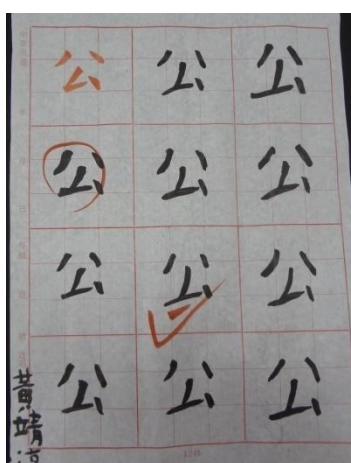 公 公 公
公 公 公
公 公 公
公 公 公
黃靖